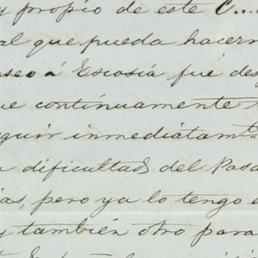 y propio de este C...
al que pueda hacerm
seo á Escosia fué des
ue continuamente
guir inmediátamte
a dificultads del Pasa
ías, pero ya lo tengo e
y también otro para